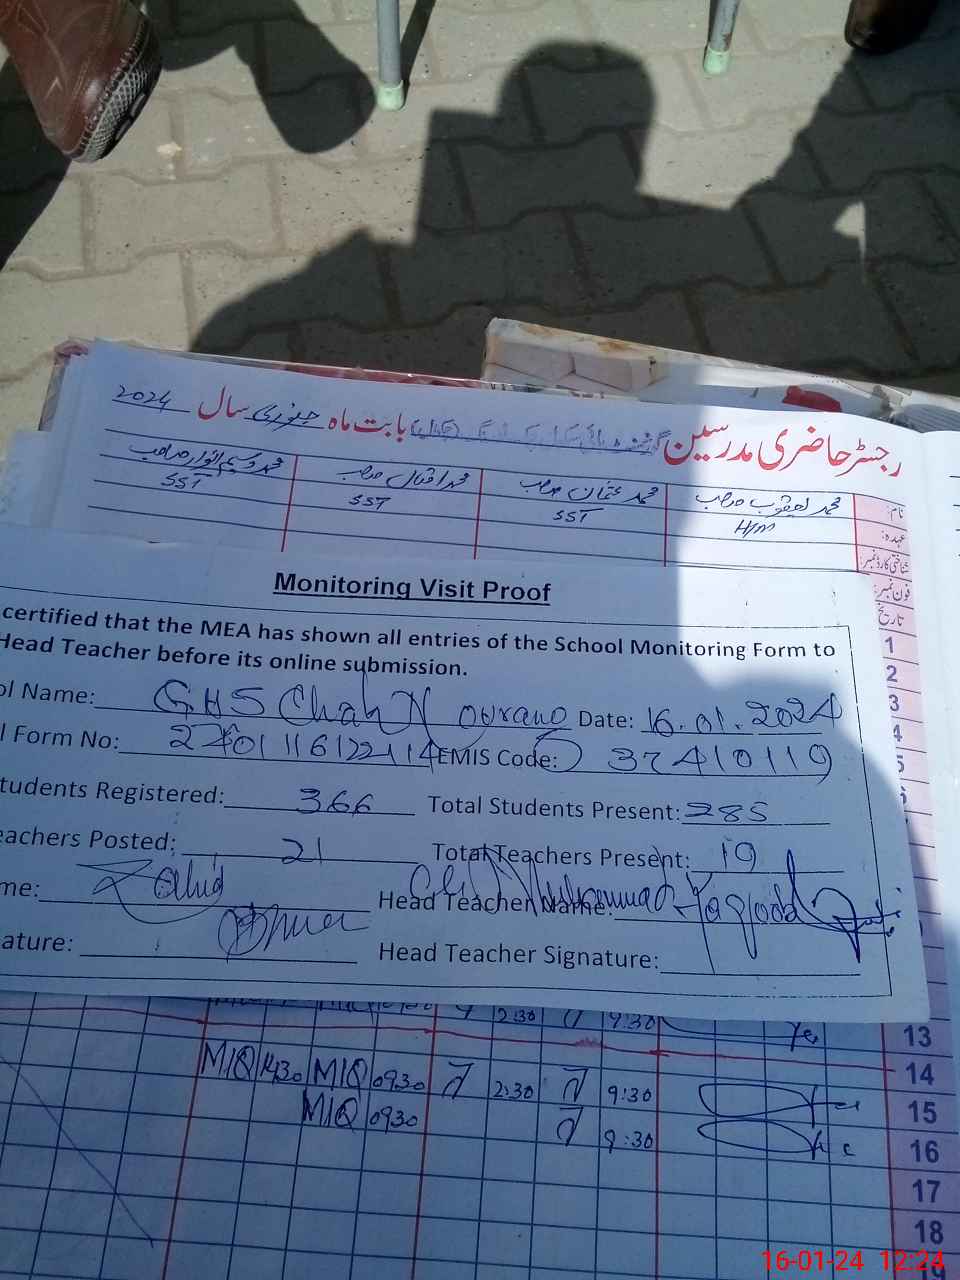 رجسٹر حاضری مدرسین بابت ماہ جنوری سال 2024
نام: محمد یعقوب صاحب محمد عثمان صاحب محمد اقبال صاحب محمد وسیم انوار صاحب
عہدہ: H/M SST SST SST
شناختی کارڈ نمبر:
فون نمبر:
تاریخ
1
2
3
4
5
6
Monitoring Visit Proof
certified that the MEA has shown all entries of the School Monitoring Form to
Head Teacher before its online submission.
ol Name: GHS Chah Nourang Date: 16.01.2024
l Form No: 2401116122114 EMIS Code: 37410119
tudents Registered: 366 Total Students Present: 285
eachers Posted: 21 Total Teachers Present: 19
me: Zahid Head Teacher Name: Ch. Muhammad Yaqoob
ature: Head Teacher Signature:
2:30 9:30 13
MIQ 1430 MIQ 0930 2:30 9:30 14
15
MIQ 0930 9:30 16
17
18
19
16-01-24 12:24